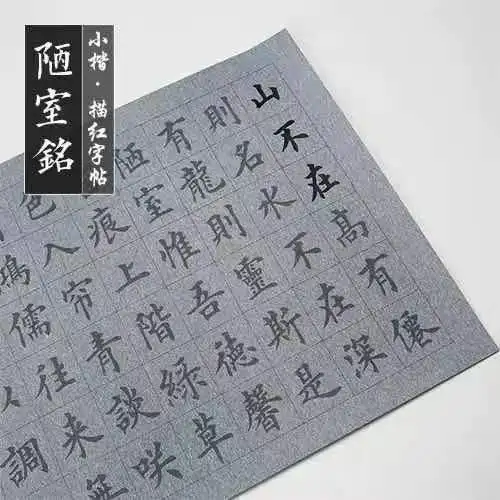 陋室銘
小楷·描红字帖
山不在高有僊
則名水不在深
有龍則靈斯是
陋室惟吾德馨
痕上階綠草
色入帘青談咲
鴻儒往來無
調